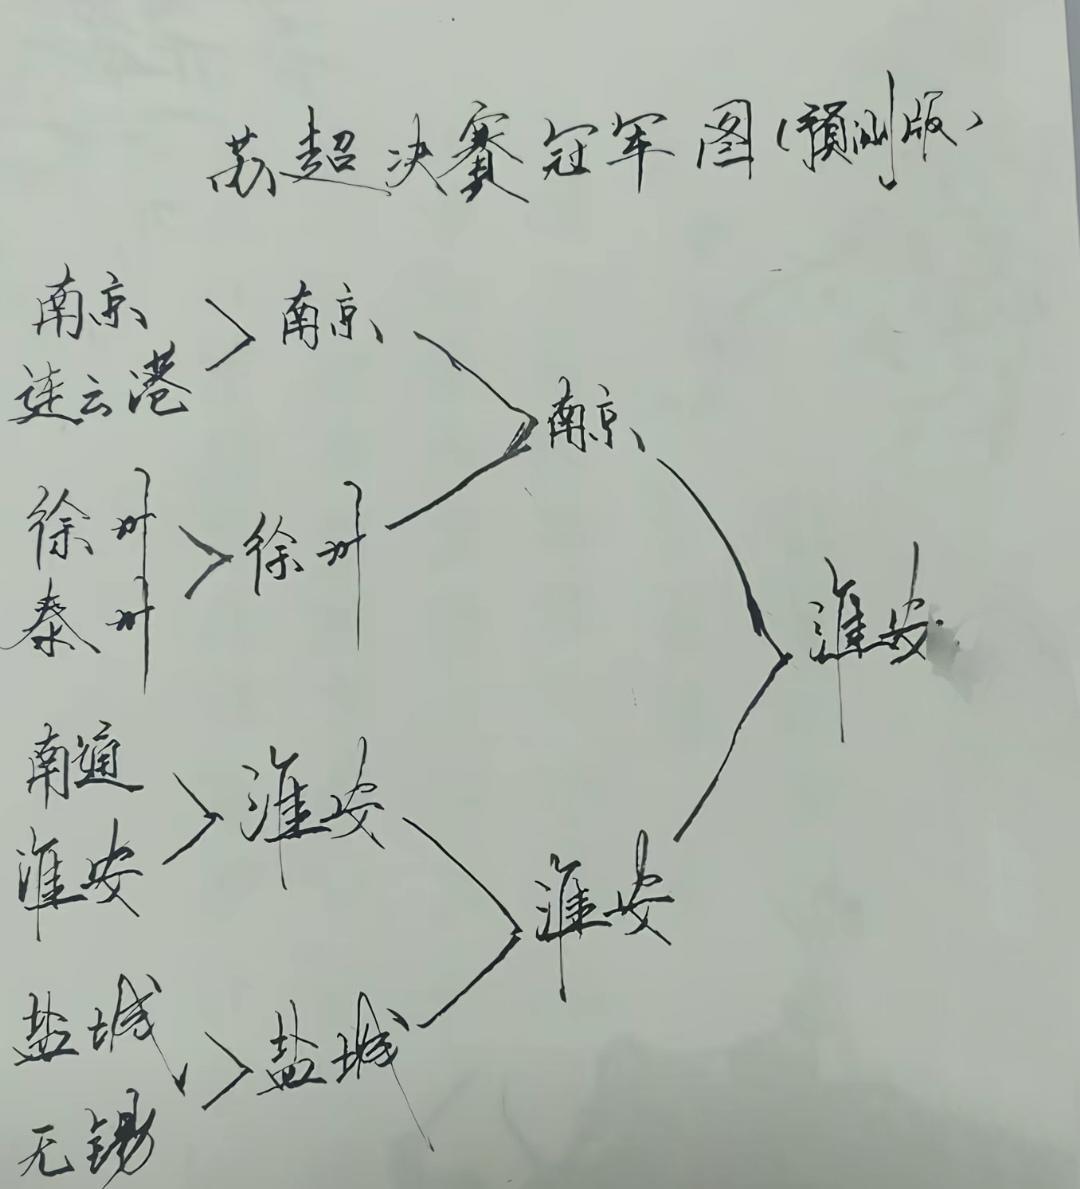 苏超决赛冠军图(预测版)
南京
连云港
南京
南京
徐州
泰州
徐州
淮安
南通
淮安
淮安
淮安
盐城
无锡
盐城